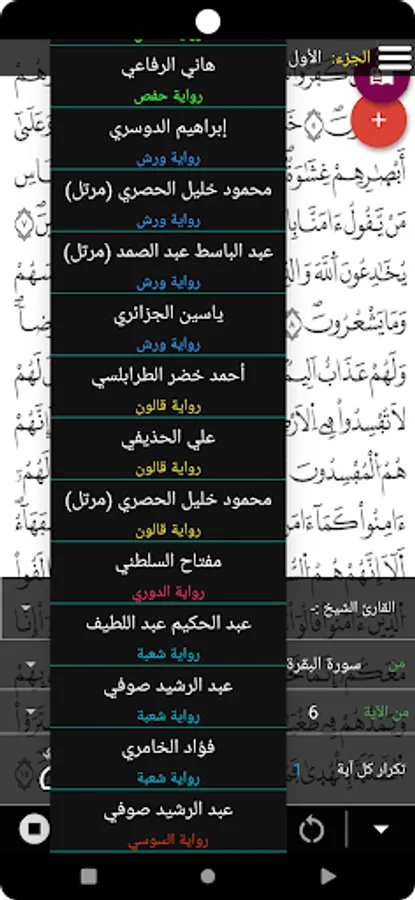 الجزء: الأول
هاني الرفاعي
رواية حفص
إبراهيم الدوسري
رواية ورش
محمود خليل الحصري (مرتل)
رواية ورش
عبد الباسط عبد الصمد (مرتل)
رواية ورش
ياسين الجزائري
رواية ورش
أحمد خضر الطرابلسي
رواية قالون
علي الحذيفي
رواية قالون
محمود خليل الحصري (مرتل)
رواية قالون
مفتاح السلطني
رواية الدوري
عبد الحكيم عبد اللطيف
رواية شعبة
عبد الرشيد صوفي
رواية شعبة
فؤاد الخامري
رواية شعبة
عبد الرشيد صوفي
رواية السوسي
أَبْصَٰرِهِمْ غِشَٰوَةٌ
مَنْ يَقُولُ ءَامَنَّا
يُخَٰدِعُونَ ٱللَّهَ
وَمَا يَشْعُرُونَ
وَلَهُمْ عَذَابٌ
لَا تُفْسِدُوا۟ فِى
هُمُ ٱلْمُفْسِدُونَ
ءَامِنُوا۟ كَمَآ ءَامَنَ
أَلَآ إِنَّهُمْ هُمُ
القارئ الشيخ :-
من سورة البقرة
من الآية 6
تكرار كل آية 1